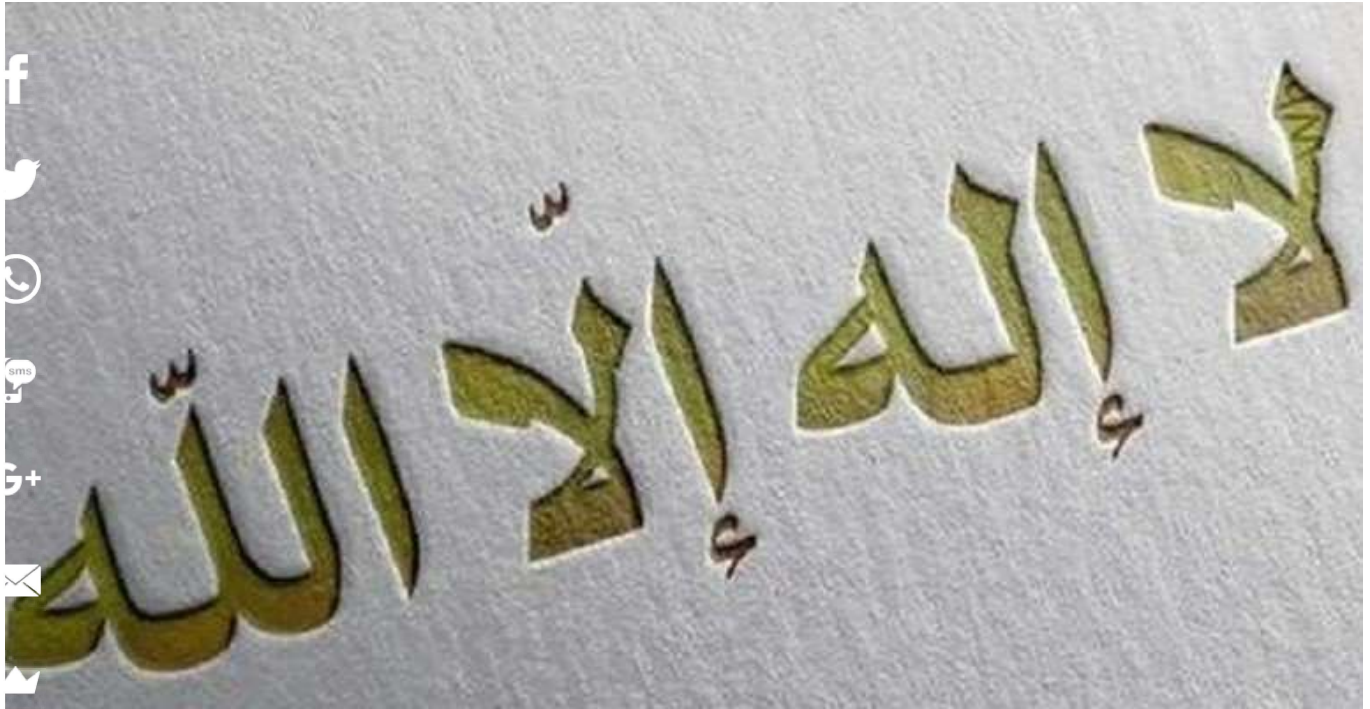 لا إله إلّا اللّه
sms
G+